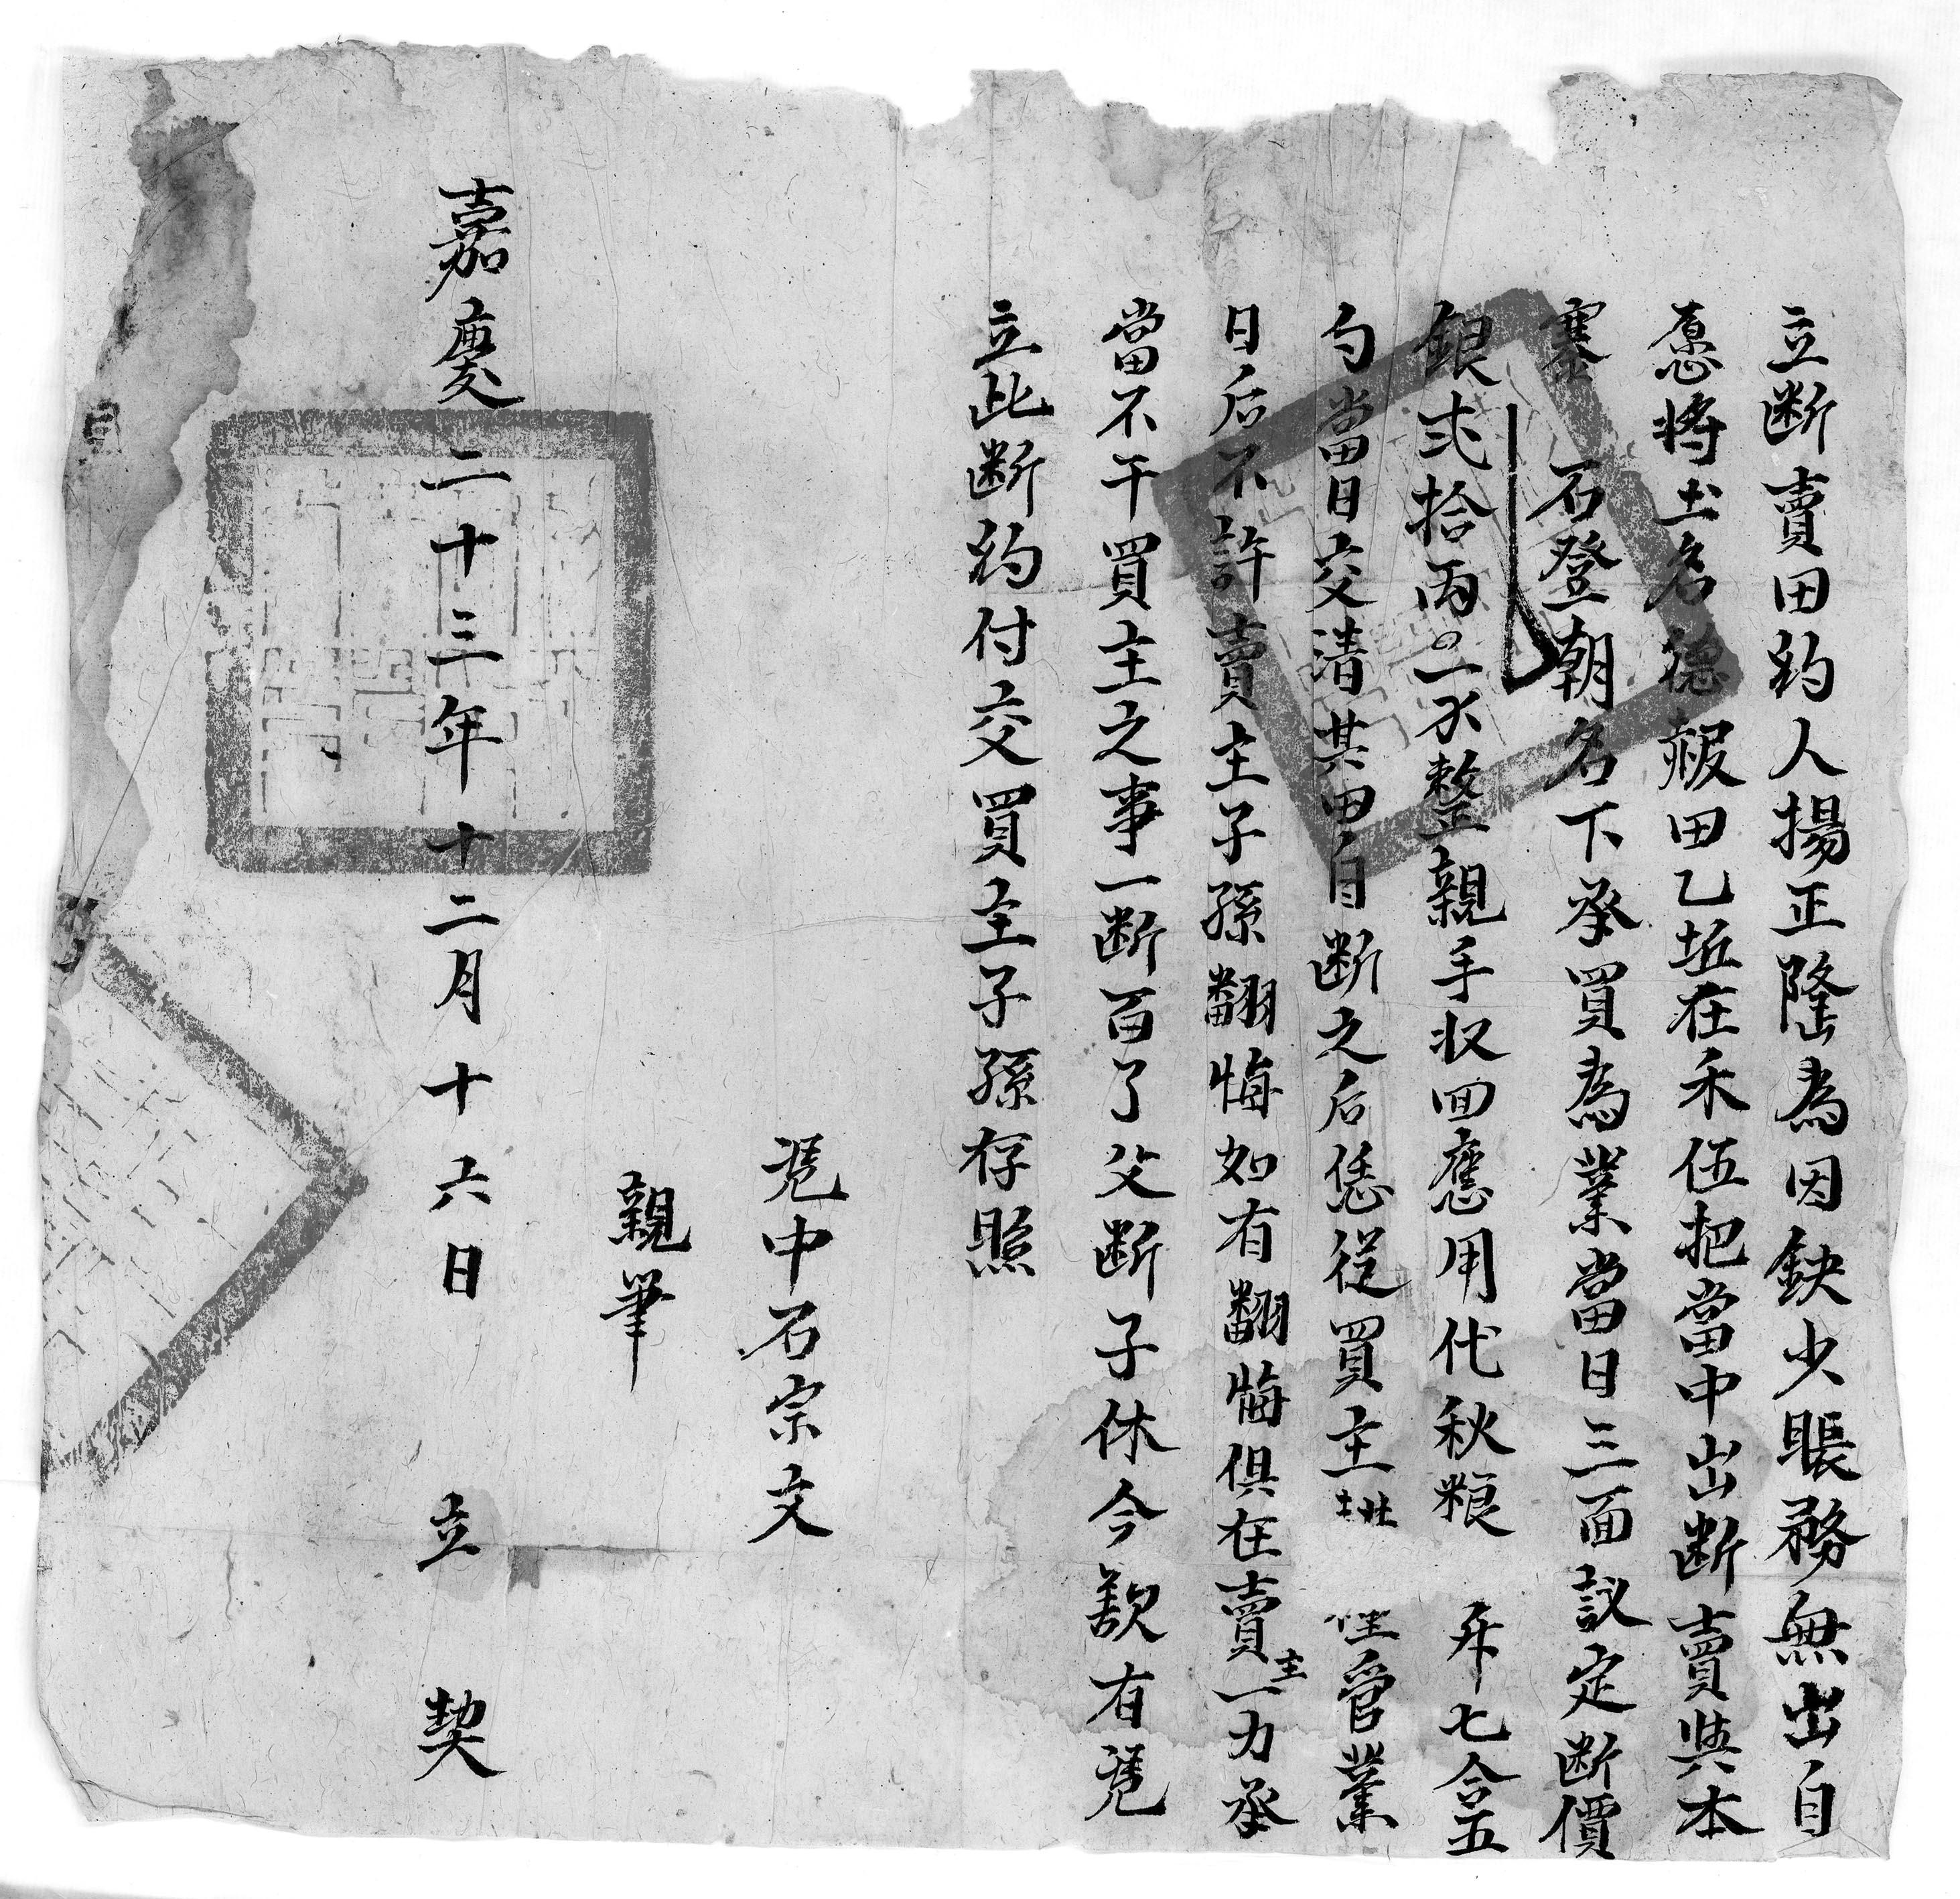 立断賣田約人揚正隆為因缺少賬務無出自
愿將土名德報田乙坵在禾伍把當中出断賣與本
寨石登朝名下承買為業當日三面議定断價
銀弍拾両〇一不整親手収回應用代秋粮 升七合五
勺當日交清其田自断之后恁從買主 管業
日后不許賣主子孫翻悔如有翻悔俱在賣主一力承
當不干買主之事一断百了父断子休今欲有凭
立此断約付交買主子孫存照
凭中石宗文
親筆
嘉慶二十三年十二月十六日 立 契